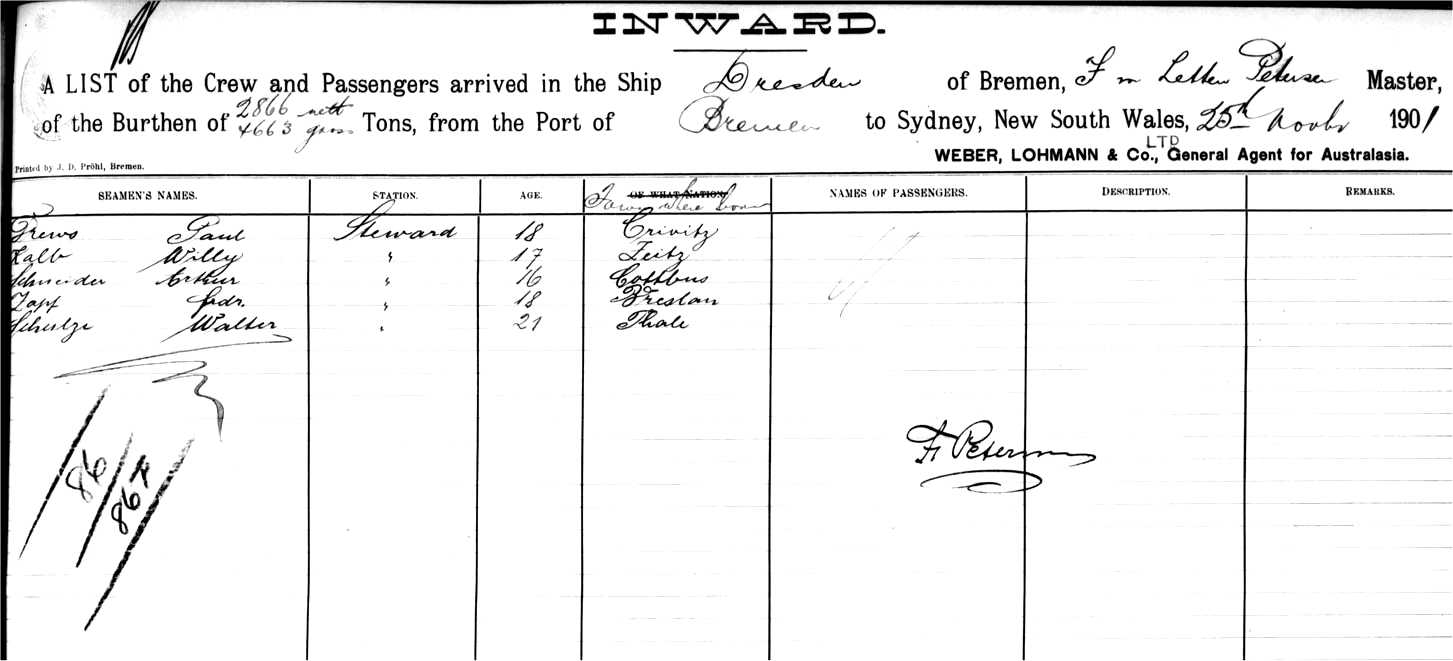 INWARD.
A LIST of the Crew and Passengers arrived in the Ship Dresden of Bremen, F Petersen Master,
of the Burthen of 2866 nett 4663 gross Tons, from the Port of Bremen to Sydney, New South Wales, 25th Novbr 1901
WEBER, LOHMANN & Co., LTD General Agent for Australasia.
Printed by J. D. Pröhl, Bremen.
SEAMEN'S NAMES. STATION. AGE. OF WHAT NATION NAMES OF PASSENGERS. DESCRIPTION. REMARKS.
Town where born
Grews Paul Steward 18 Crivitz
Kalb Willy " 17 Zeitz
Schneider Arthur " 16 Cottbus
Zapf Frdr. " 18 Breslau
Schultze Walter " 21 Thale
F. Petersen
86
867